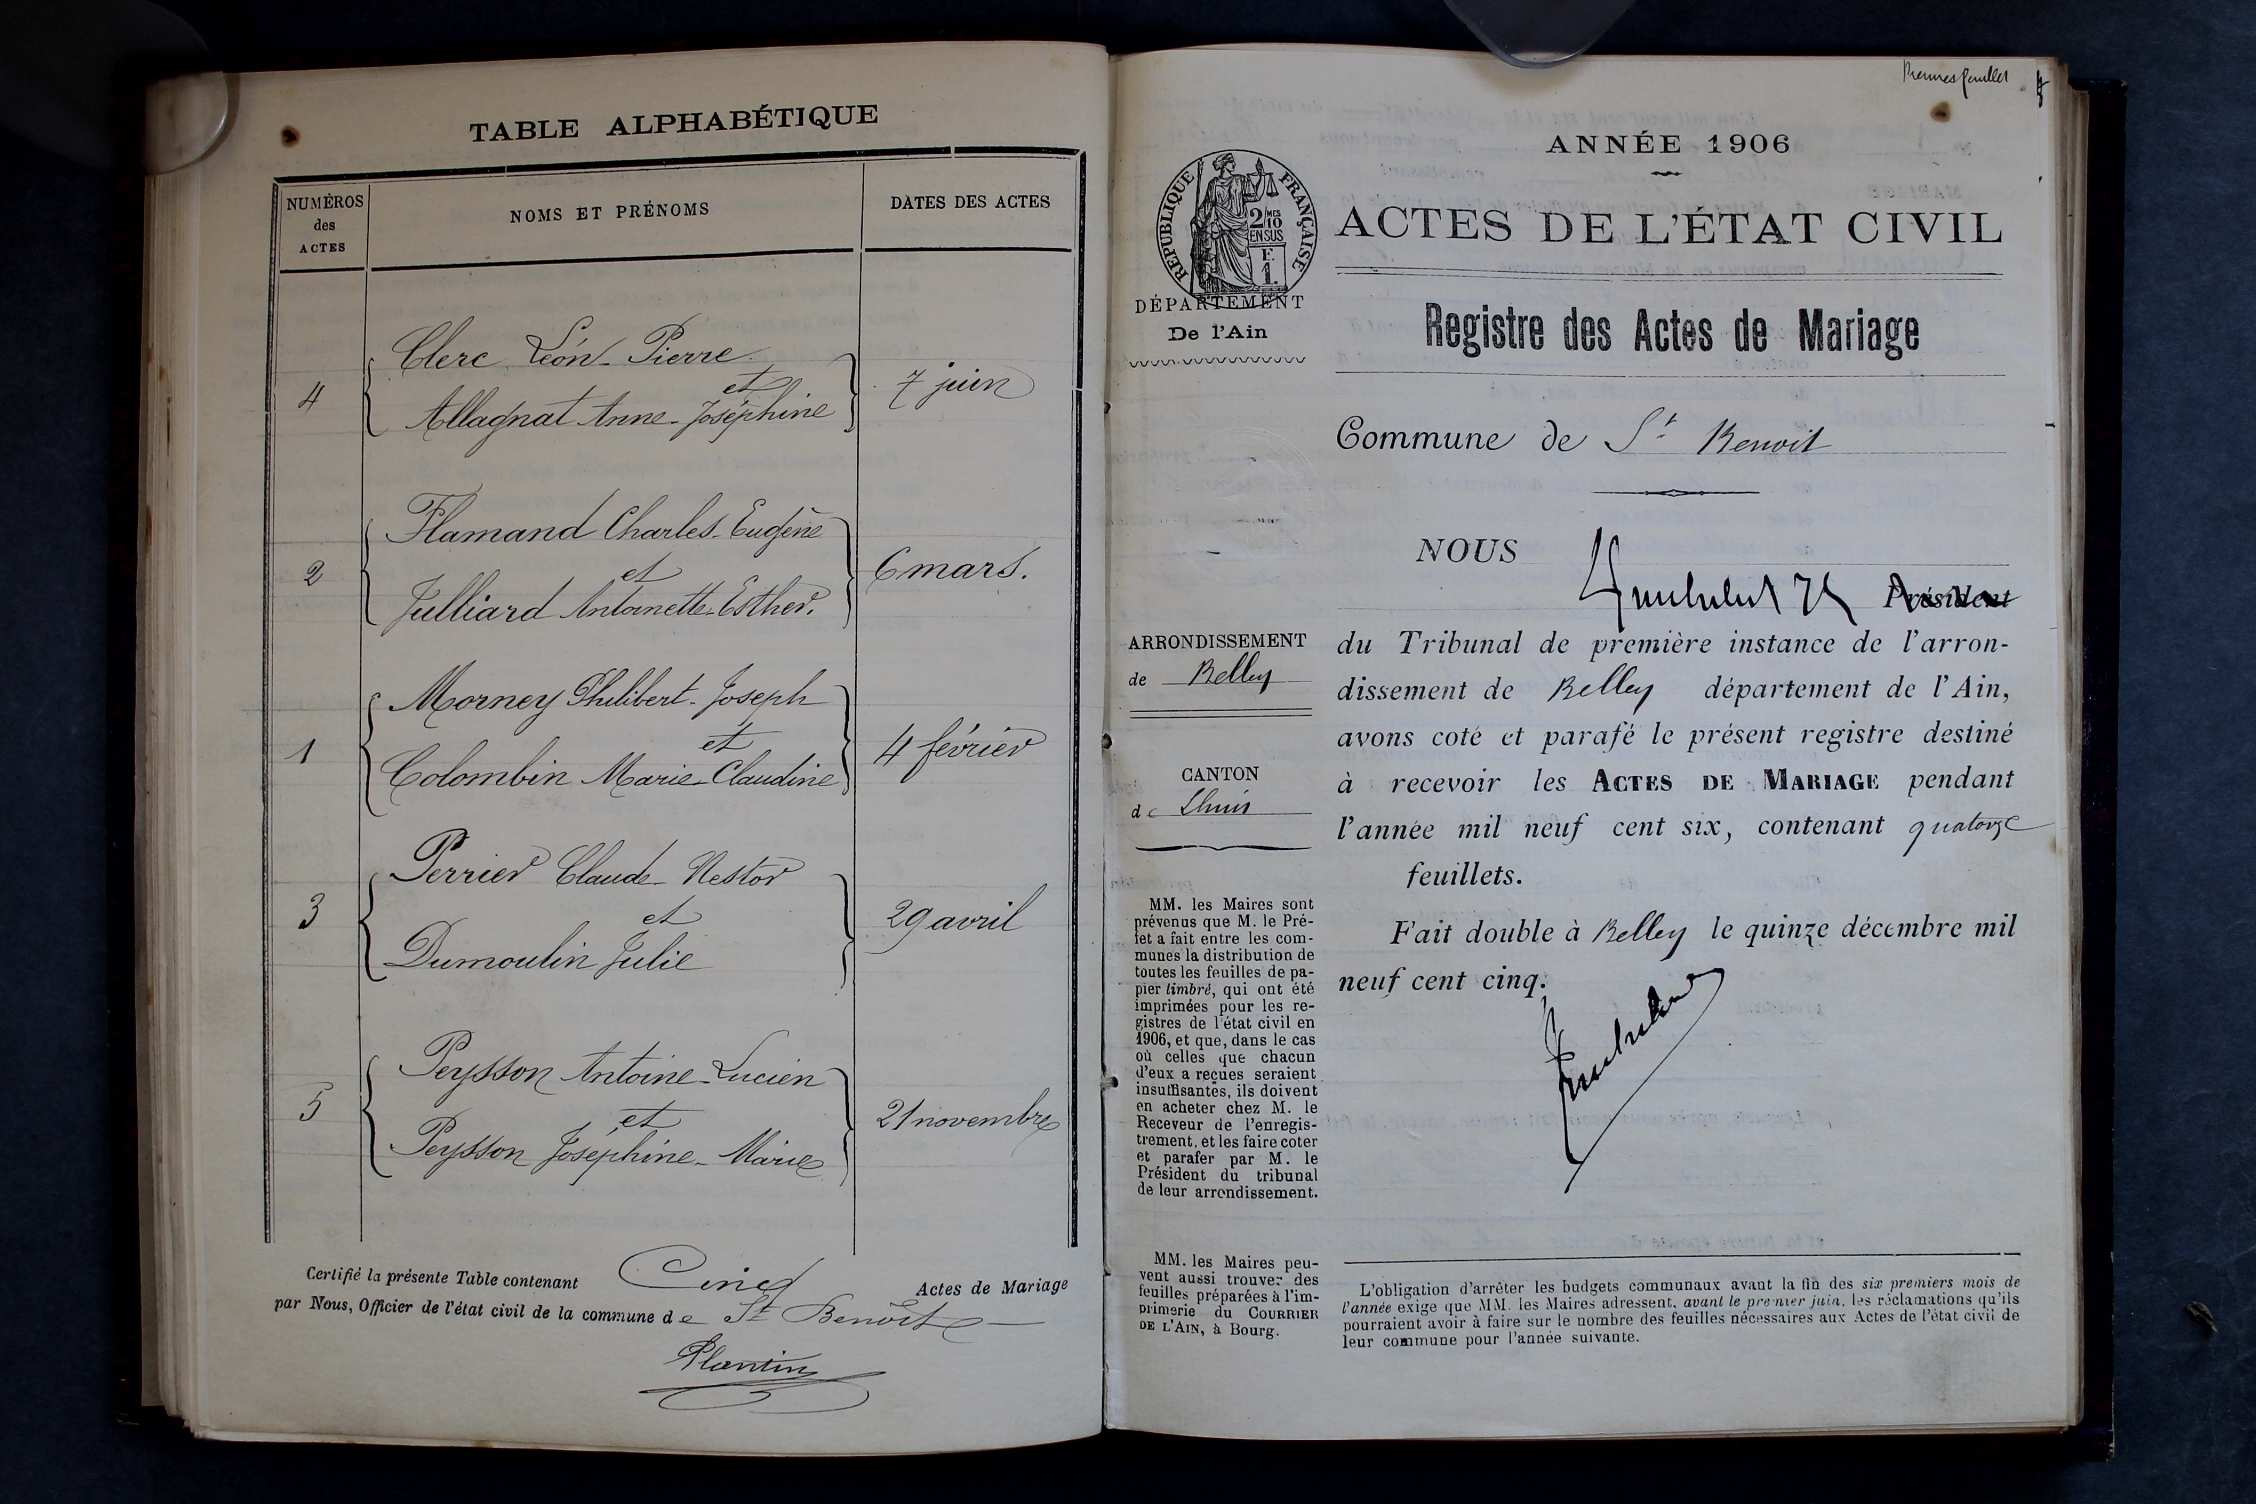 TABLE ALPHABÉTIQUE
NUMÉROS
des
ACTES
NOMS ET PRÉNOMS
DATES DES ACTES
Clerc Léon-Pierre
et
4
7 juin
Allagnat Anne-Joséphine
Flamand Charles-Eugène
2
et
6 mars.
Julliard Antoinette-Esther.
Morney Philibert-Joseph
1
et
4 février
Colombin Marie-Claudine
Perrier Claude-Nestor
3
et
29 avril
Dumoulin Julie
Peysson Antoine-Lucien
5
et
21 novembre
Peysson Joséphine-Marie
Certifié la présente Table contenant Cinq Actes de Mariage
par Nous, Officier de l'état civil de la commune de St Benoît
Plantin
Premier feuillet
ANNÉE 1906
RÉPUBLIQUE FRANÇAISE
2/10 MES
EN SUS
F.
1.
DÉPARTEMENT
De l'Ain
ACTES DE L'ÉTAT CIVIL
Registre des Actes de Mariage
Commune de St Benoit
NOUS
Président
ARRONDISSEMENT
de Belley
CANTON
de Lhuis
du Tribunal de première instance de l'arron-
dissement de Belley département de l'Ain,
avons coté et parafé le présent registre destiné
à recevoir les ACTES DE MARIAGE pendant
l'année mil neuf cent six, contenant quatorze
feuillets.
Fait double à Belley le quinze décembre mil
neuf cent cinq.
MM. les Maires sont
prévenus que M. le Pré-
fet a fait entre les com-
munes la distribution de
toutes les feuilles de pa-
pier timbré, qui ont été
imprimées pour les re-
gistres de l'état civil en
1906, et que, dans le cas
où celles que chacun
d'eux a reçues seraient
insuffisantes, ils doivent
en acheter chez M. le
Receveur de l'enregis-
trement, et les faire coter
et parafer par M. le
Président du tribunal
de leur arrondissement.
MM. les Maires peu-
vent aussi trouver des
feuilles préparées à l'im-
primerie du COURRIER
DE L'AIN, à Bourg.
L'obligation d'arrêter les budgets communaux avant la fin des six premiers mois de
l'année exige que MM. les Maires adressent, avant le premier juin, les réclamations qu'ils
pourraient avoir à faire sur le nombre des feuilles nécessaires aux Actes de l'état civil de
leur commune pour l'année suivante.